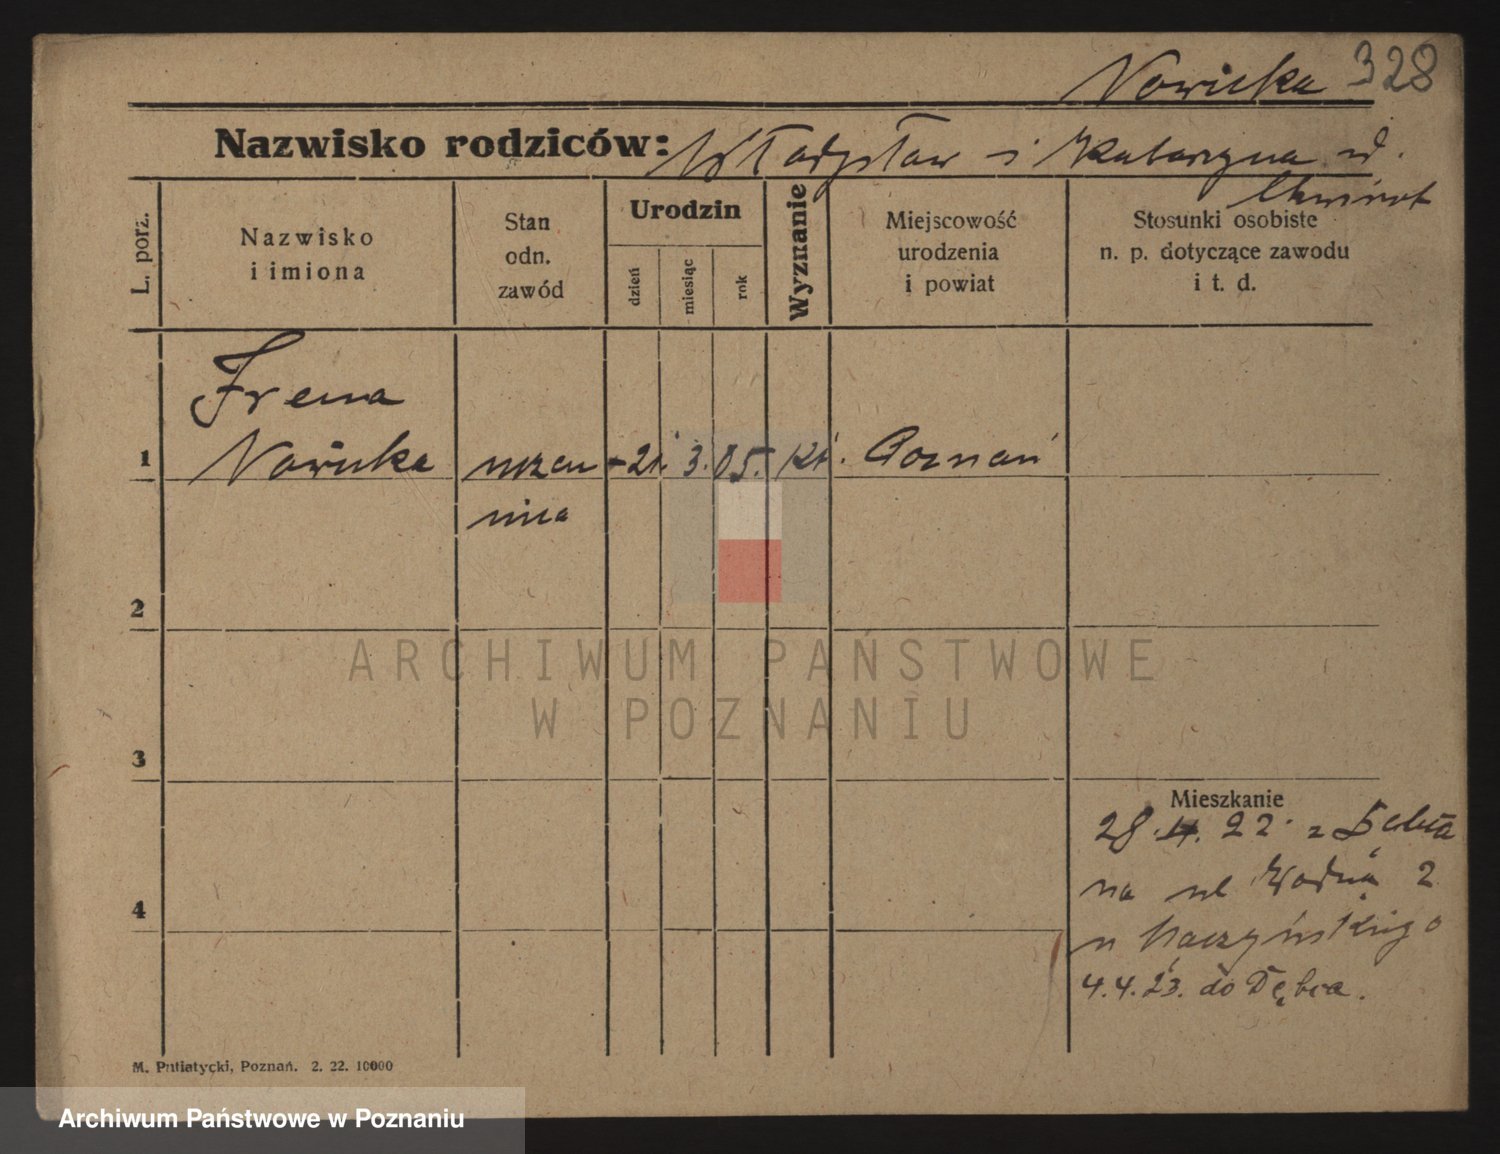 Nowicka 328
Nazwisko rodziców: Władysław i Katarzyna ur.
L. porz.
Nazwisko
i imiona
Stan
odn.
zawód
Urodzin
dzień
miesiąc
rok
Wyznanie
Miejscowość
urodzenia
i powiat
Stosunki osobiste
n. p. dotyczące zawodu
i t. d.
Irena
1 Nowicka uczen- 21. 3. 05. kt. Poznań
nica
2
3
4
ARCHIWUM PAŃSTWOWE
W POZNANIU
Mieszkanie
28.4.22. z Dębca
na ul Wodną 2
u Kaczyńskiego
4.4.23. do Dębca.
M. Putiatycki, Poznań. 2. 22. 10000
Archiwum Państwowe w Poznaniu